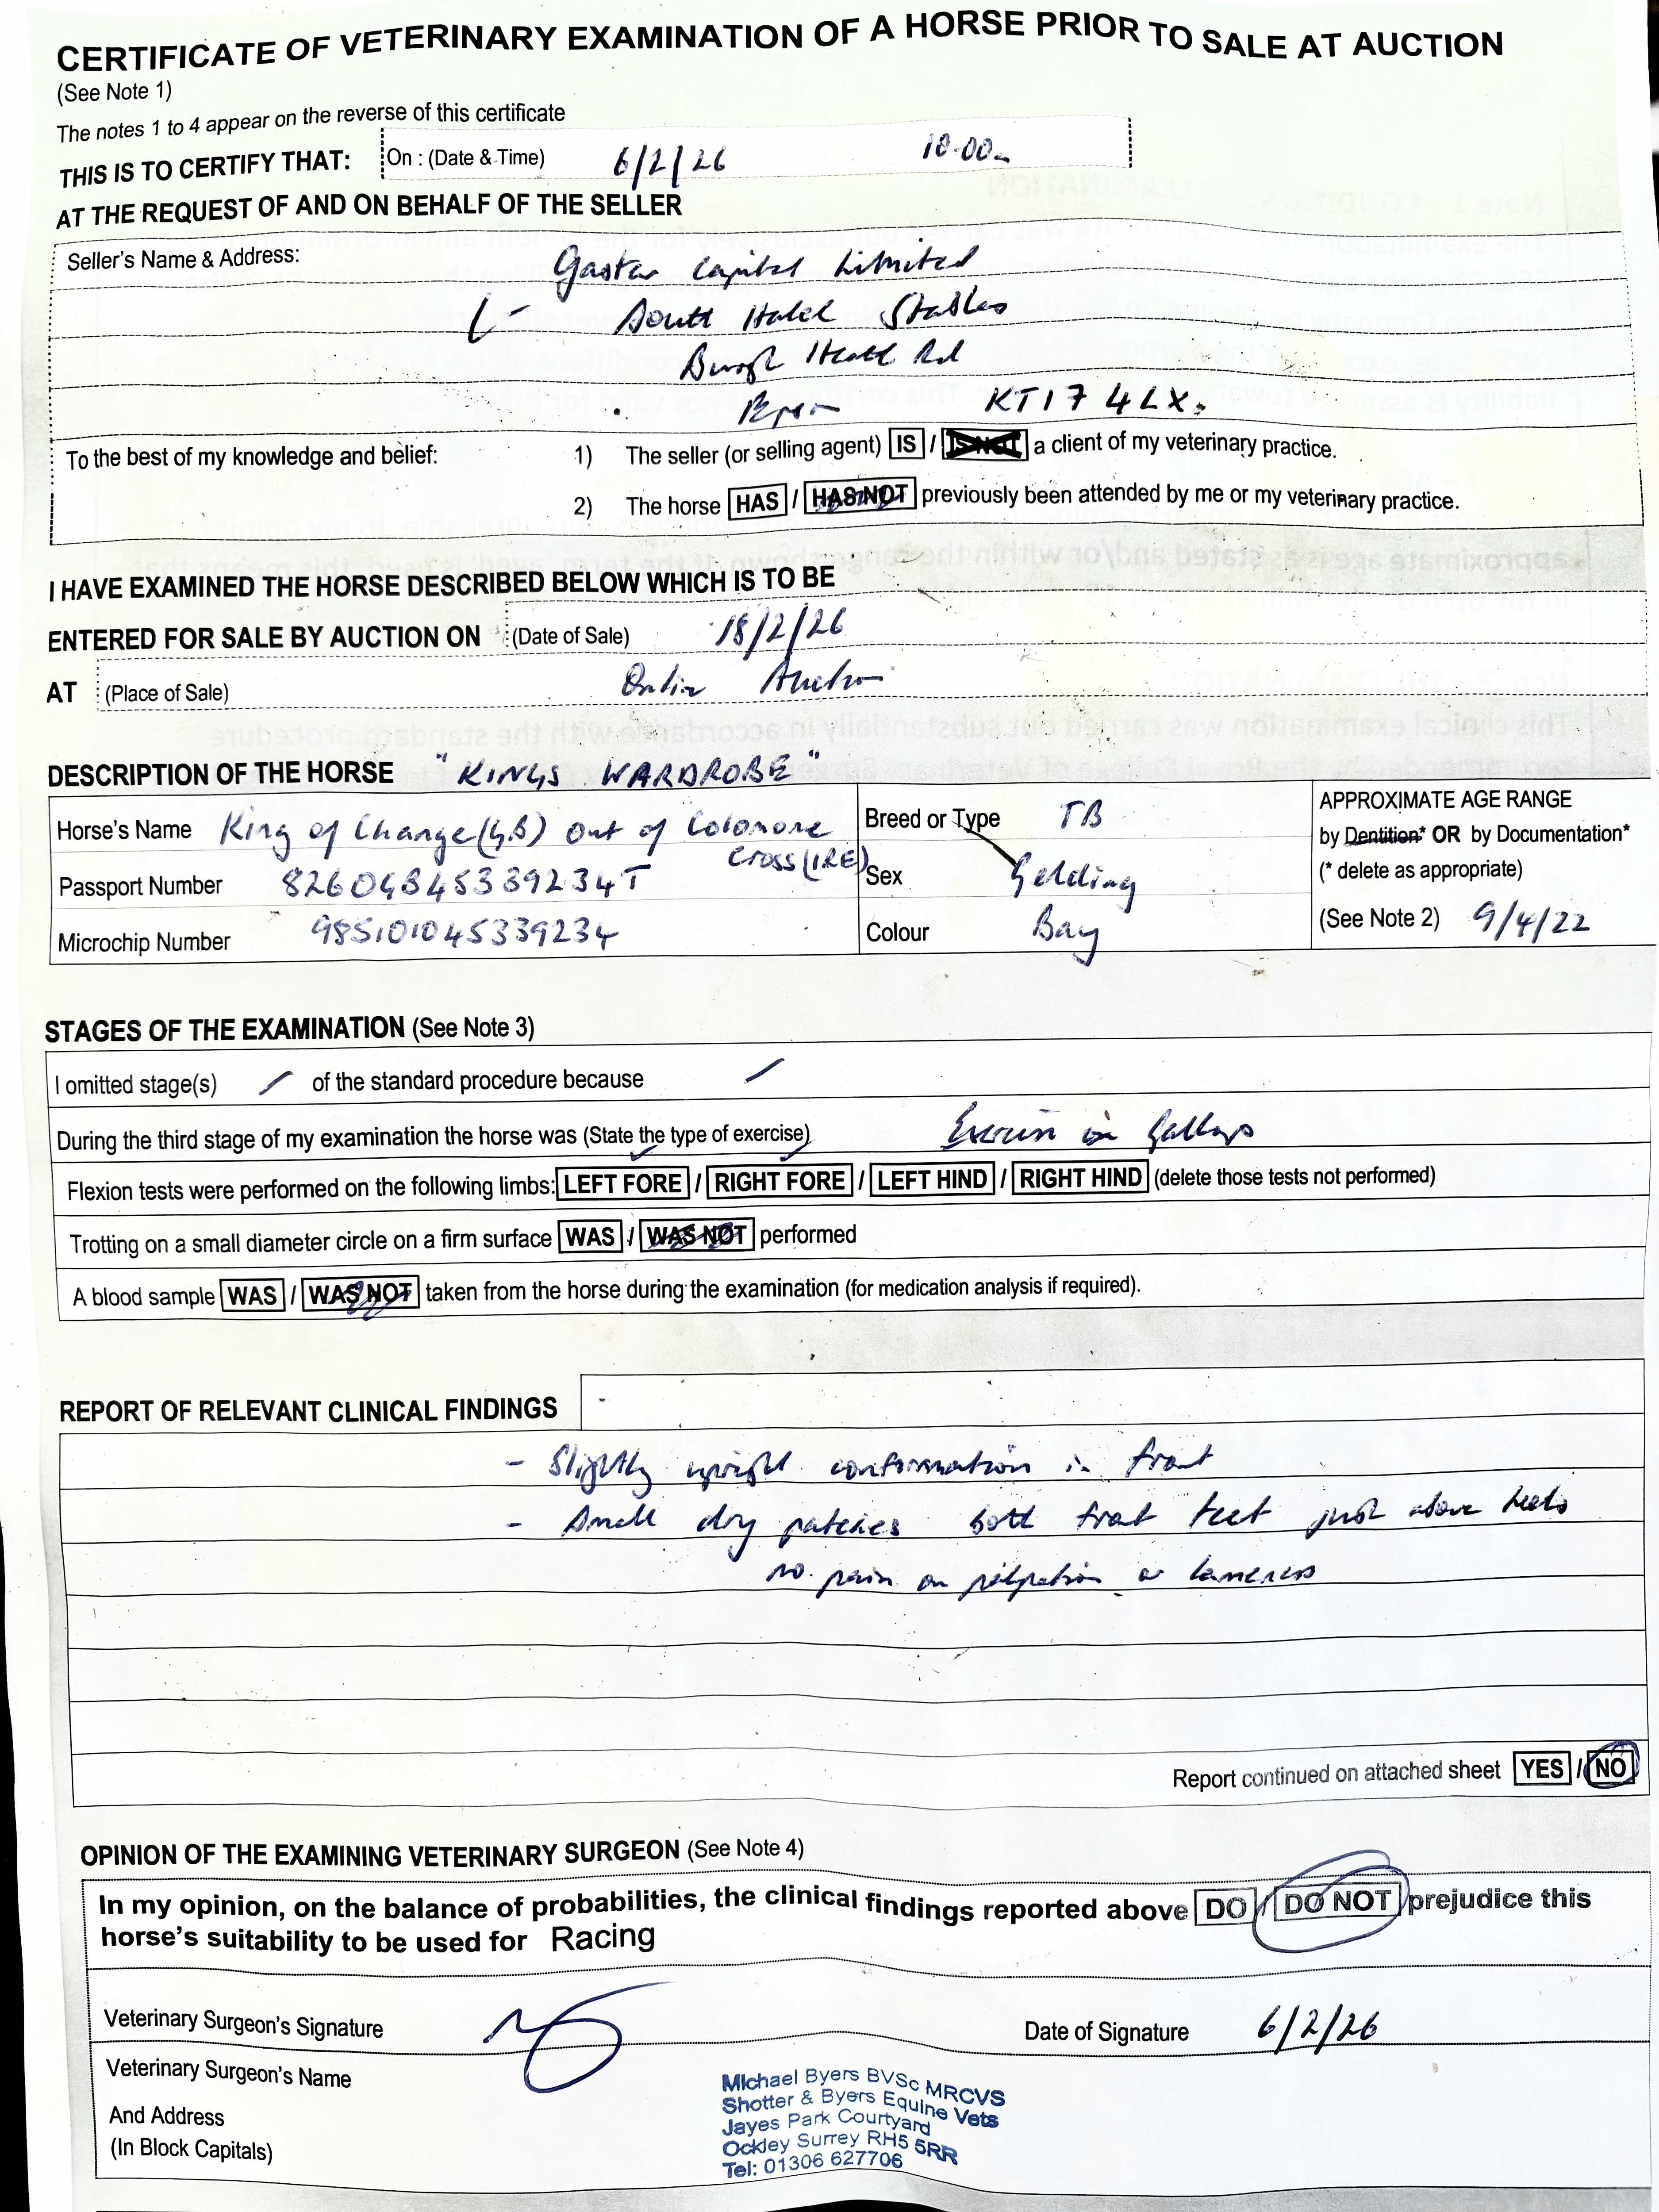 CERTIFICATE OF VETERINARY EXAMINATION OF A HORSE PRIOR TO SALE AT AUCTION
(See Note 1)
The notes 1 to 4 appear on the reverse of this certificate
THIS IS TO CERTIFY THAT: On : (Date & Time) 6/2/26 10.00
AT THE REQUEST OF AND ON BEHALF OF THE SELLER
Seller's Name & Address: Gastar Capital Limited
South Hatch Stables
Burgh Heath Rd
Epsom KT17 4LX.
To the best of my knowledge and belief: 1) The seller (or selling agent) IS / IS NOT a client of my veterinary practice.
2) The horse HAS / HAS NOT previously been attended by me or my veterinary practice.
I HAVE EXAMINED THE HORSE DESCRIBED BELOW WHICH IS TO BE
ENTERED FOR SALE BY AUCTION ON (Date of Sale) 18/2/26
AT (Place of Sale) Online Auction
DESCRIPTION OF THE HORSE "KINGS WARDROBE"
Horse's Name King of Change (GB) out of Colomone Cross (IRE)
Breed or Type TB
APPROXIMATE AGE RANGE
by Dentition* OR by Documentation*
Passport Number 826GB45339234T
Sex Gelding
(* delete as appropriate)
Microchip Number 985101045339234
Colour Bay
(See Note 2) 9/4/22
STAGES OF THE EXAMINATION (See Note 3)
I omitted stage(s) / of the standard procedure because /
During the third stage of my examination the horse was (State the type of exercise) in Gallops
Flexion tests were performed on the following limbs: LEFT FORE / RIGHT FORE / LEFT HIND / RIGHT HIND (delete those tests not performed)
Trotting on a small diameter circle on a firm surface WAS / WAS NOT performed
A blood sample WAS / WAS NOT taken from the horse during the examination (for medication analysis if required).
REPORT OF RELEVANT CLINICAL FINDINGS -
- Slightly upright conformation in front
- Small dry patches both front feet just above heels
no pain on palpation or lameness
Report continued on attached sheet YES / NO
OPINION OF THE EXAMINING VETERINARY SURGEON (See Note 4)
In my opinion, on the balance of probabilities, the clinical findings reported above DO / DO NOT prejudice this
horse's suitability to be used for Racing
Veterinary Surgeon's Signature
Date of Signature 6/2/26
Veterinary Surgeon's Name
And Address
(In Block Capitals)
Michael Byers BVSc MRCVS
Shotter & Byers Equine Vets
Jayes Park Courtyard
Ockley Surrey RH5 5RR
Tel: 01306 627706